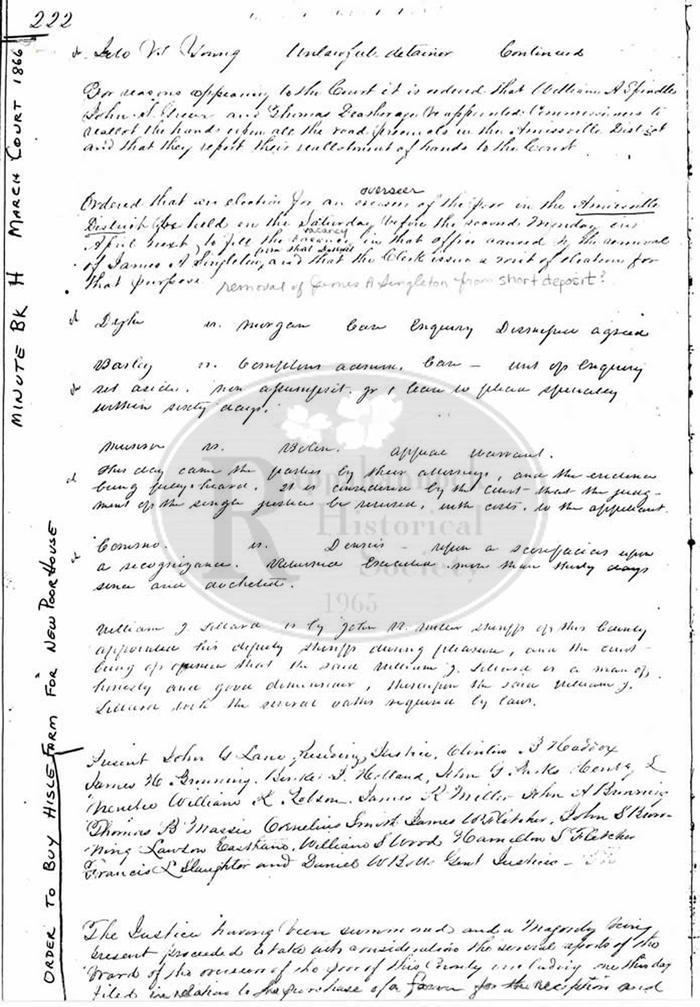 222
MINUTE BK H MARCH COURT 1866
ORDER TO BUY HISLE FARM FOR NEW POOR HOUSE
Young Unlawful detainer Continued
For reasons appearing to the Court it is ordered that William A Spindle
John and Thomas be appointed Commissioners to
reallot the hands upon all the road precincts in the Amissville District
and that they report their reallotment of hands to the Court
overseer
Ordered that an election for an overseer of the poor in the Amissville
District be held on the Saturday before the second Monday in
vacancy
April next, to fill the vacancy in that office caused by the removal
from that District
of James A Singleton, and that the Clerk issue a writ of election for
that purpose. removal of James A Singleton from short deposit?
vs. Morgan Case Enquiry Dismissed agreed
vs. Compton's admr. Case – writ of enquiry
set aside. non assumpsit. & leave to plead specially
within sixty days.
vs. Bolen. appeal warrant.
This day came the parties by their attorneys, and the evidence
being fully heard. It is considered by the court that the judg-
ment of the single justice be reversed, with costs. to the appellant
vs. Dennis upon a scirefacias upon
a recognizance. Returned Executed more than thirty days
since and docketed.
Rappahannock
Historical
Society
1965
William J. Sillard is by John R. Miller Sheriff of this County
appointed his deputy sheriff during pleasure, and the court
being of opinion that the said William J. Sillard is a man of
honesty and good demeanour, thereupon the said William J.
Sillard took the several oaths required by law.
Present John G Lane Presiding Justice, Clinton B Haddox
James H Browning. J. Holland, John G Parks Henry L
Menefee William K. James R Miller John A Browning
Thomas B Massie Cornelius Smith James W Fletcher, John S Brow-
ning Lawson Eastham, William S Wood Hamilton S Fletcher
Francis L Slaughter and Daniel W Botts Gent Justices –
The Justices having been summoned and a Majority being
present proceeded to take into consideration the several reports of the
Board of the overseers of the poor of this County including one this day
filed in relation to the purchase of a farm for the reception and